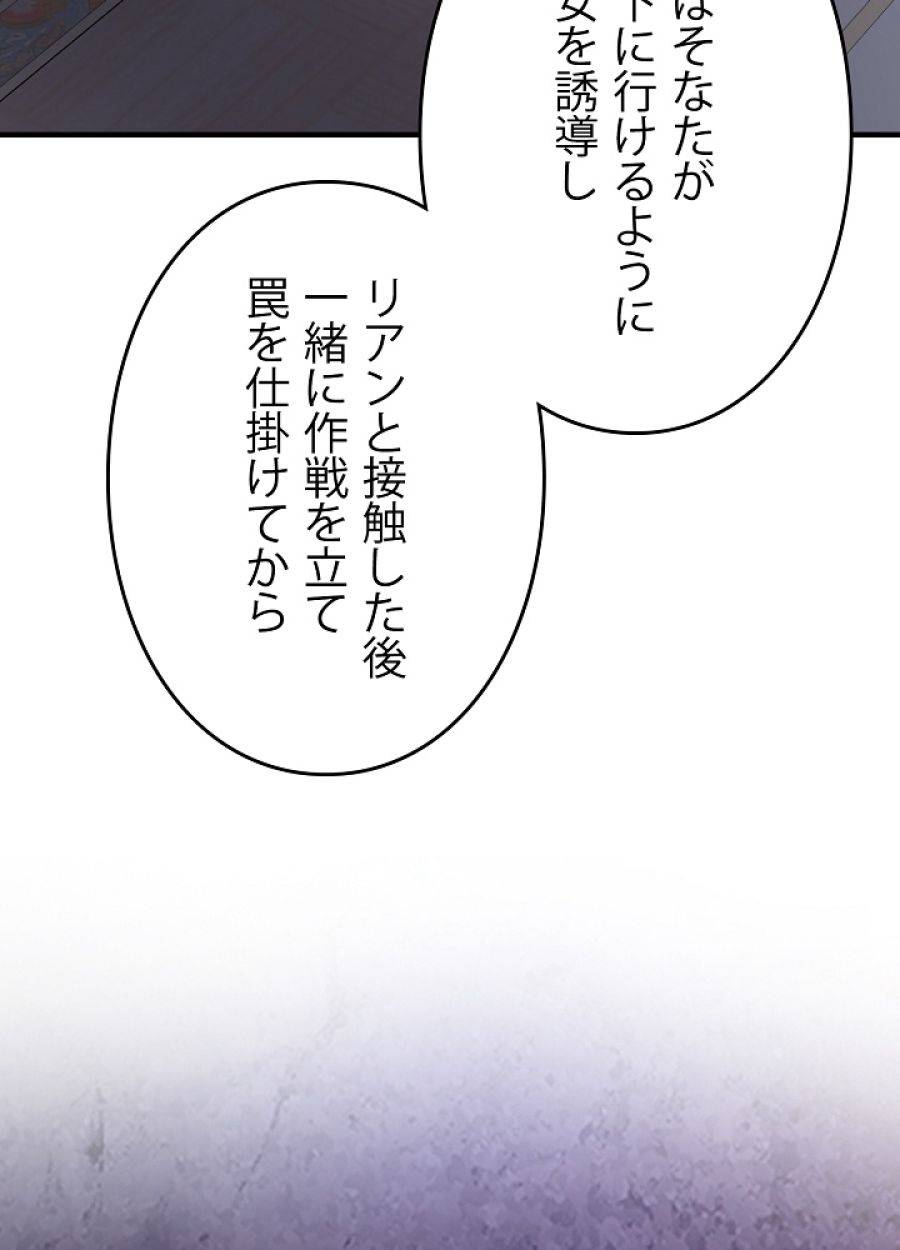 はそなたが
下に行けるように
女を誘導し
リアンと接触した後
一緒に作戦を立て
罠を仕掛けてから